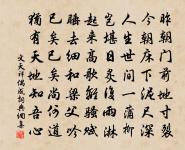 昨朝門前地寸裂
今朝床下泥尺深
人生世間一蒲柳
豈堪日炙復雨淋
起來高歌離騷賦
睡去細和梁父吟
已矣已矣尚何道
猶有天地知吾心
文天祥偶成詞典網